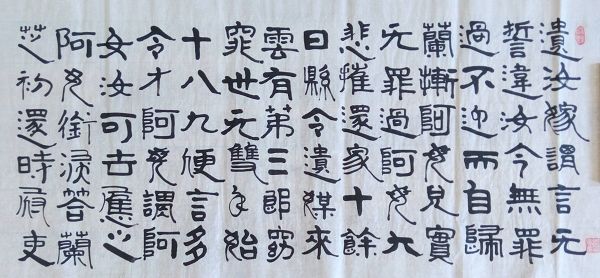 遣汝嫁謂言无
誓違汝今無罪
過不迎而自歸
蘭慚阿母兒實
无罪過阿母大
悲摧還家十餘
日縣令遣媒來
雲有第三郎窈
窕世无雙年始
十八九便言多
令才阿母謂阿
女汝可去應之
阿女銜淚答蘭
芝初還時府吏